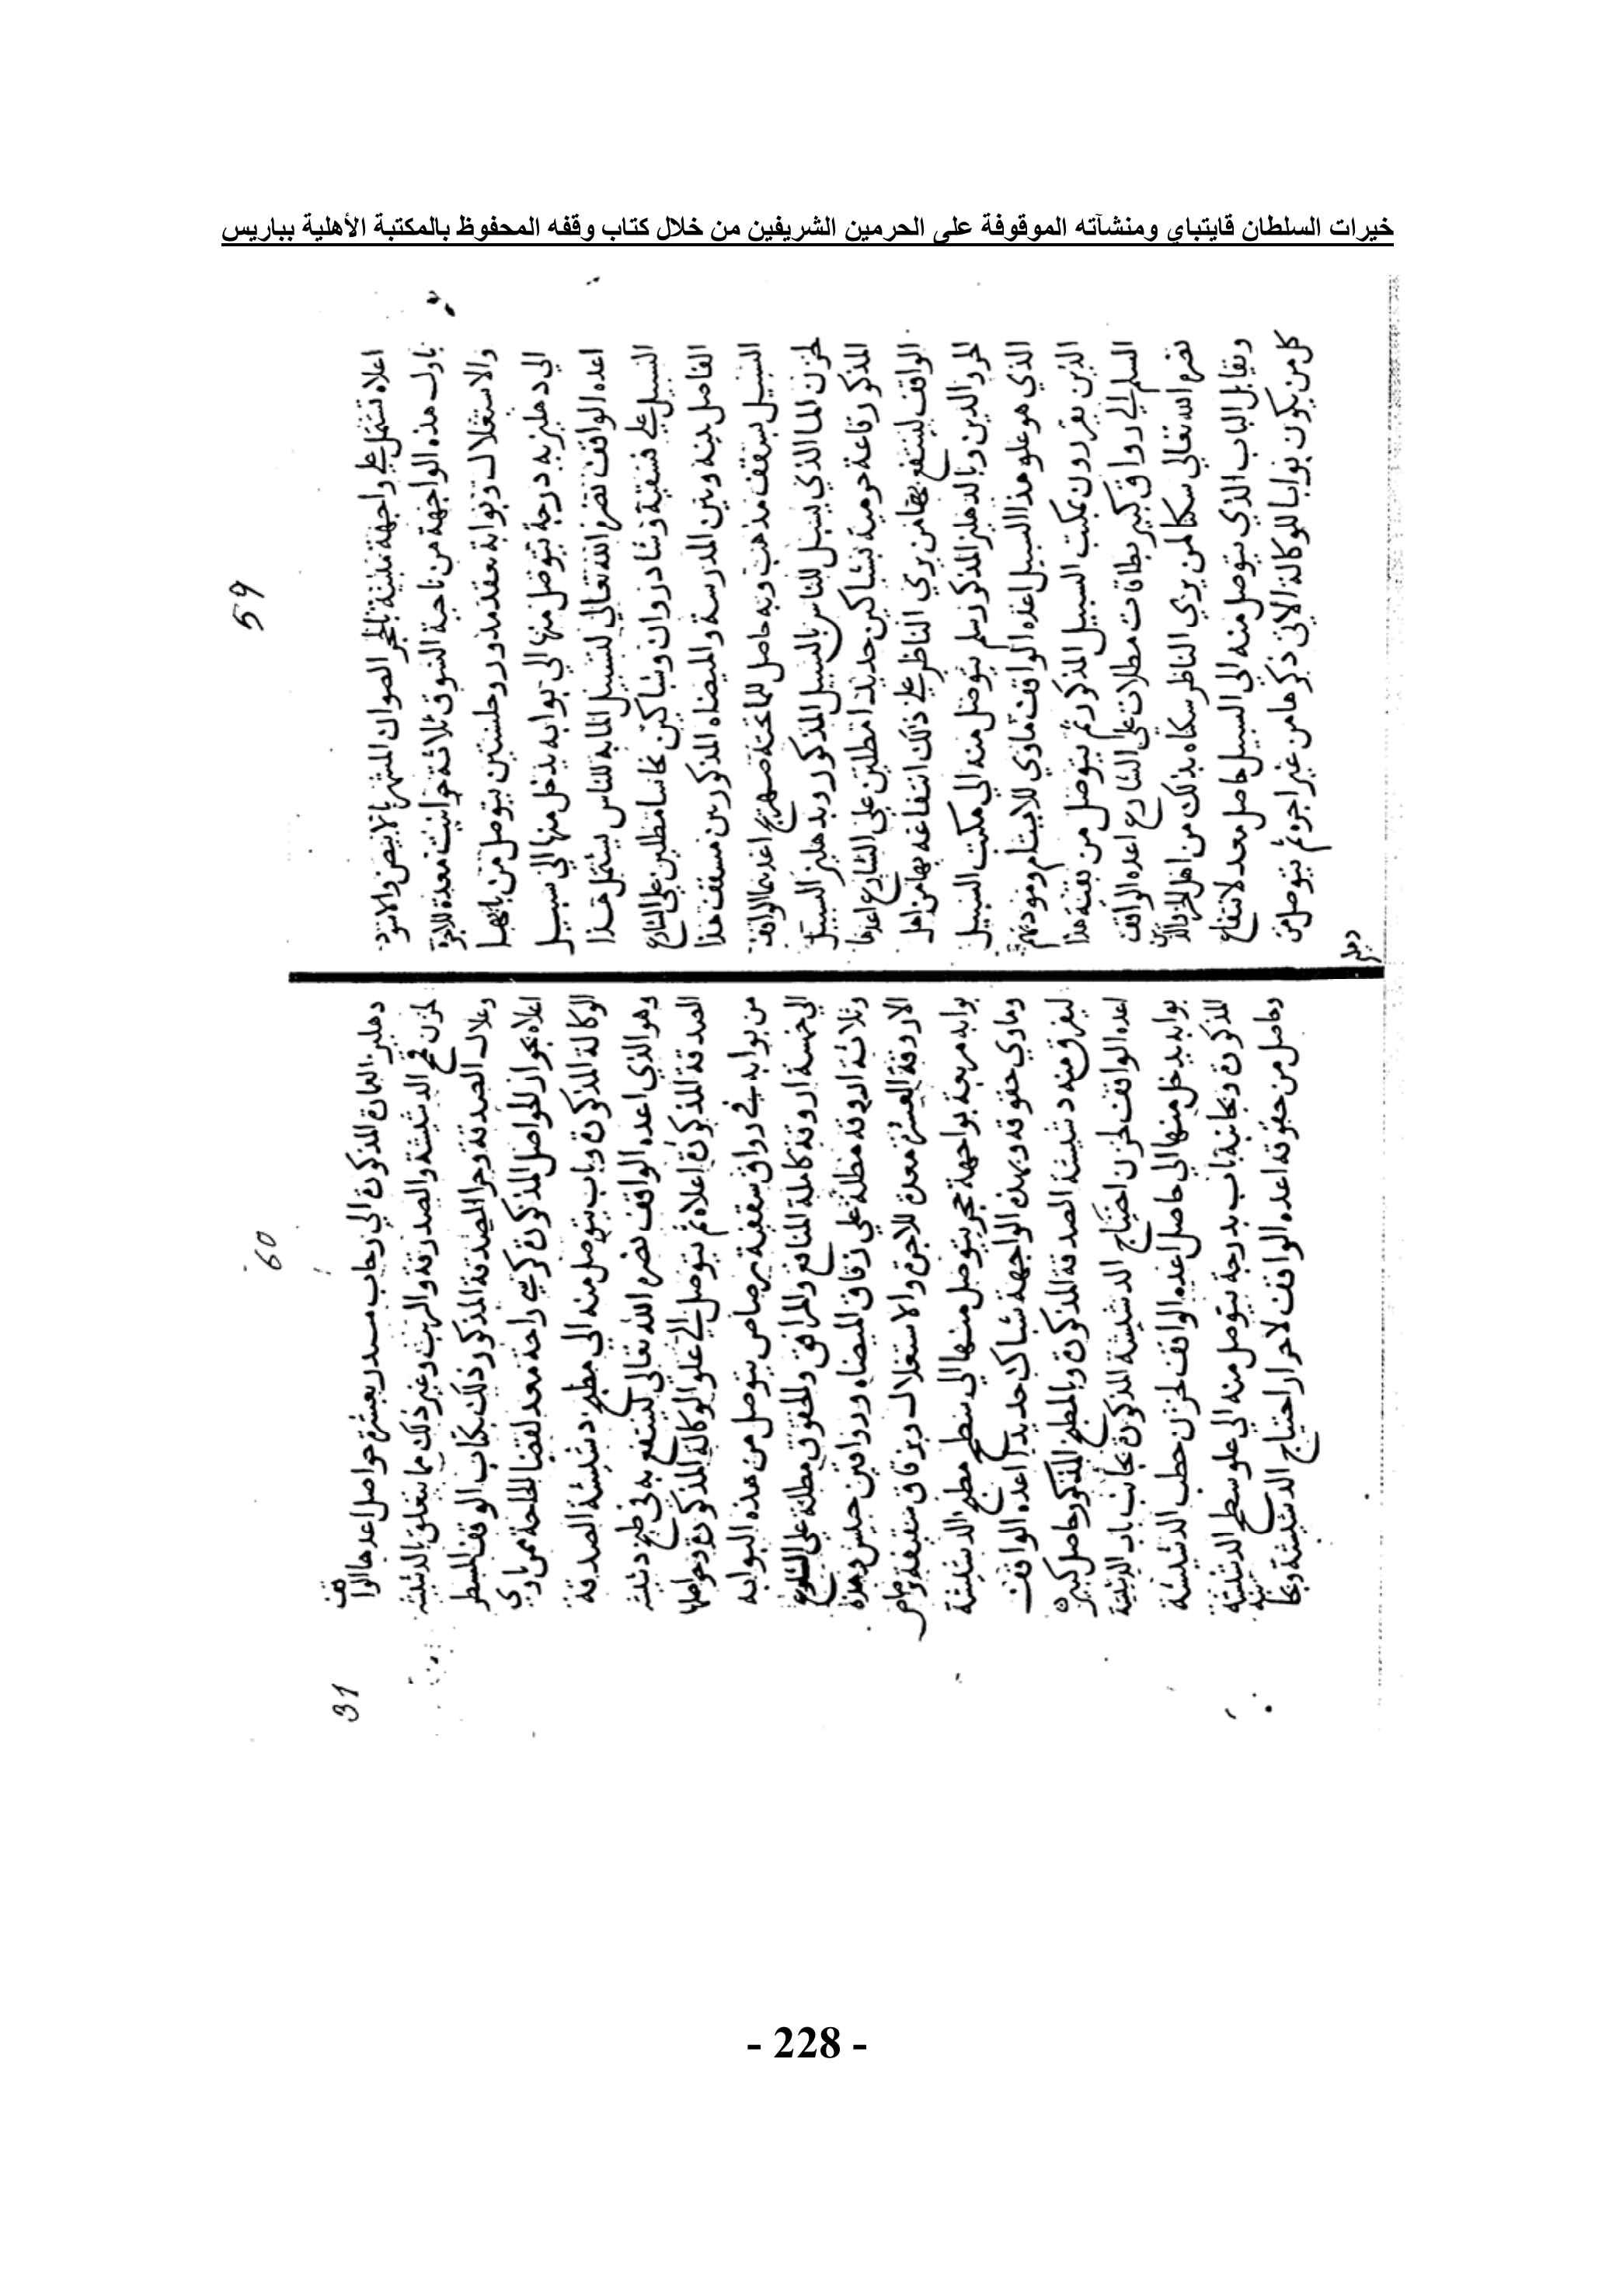 خيرات السلطان قايتباي ومنشآته الموقوفة على الحرمين الشريفين من خلال كتاب وقفه المحفوظ بالمكتبة الأهلية بباريس
59
اعلاه تشتمل علي واجهة مبنية بالحجر الصوان المشهر بالابيض والاسود
باول هذه الواجهة من ناحية السوق ثلاثة حوانيت معدة للاجرة
والاستغلال وبوابة بعقد مدور وجلستين يتوصل من بابها
الي دهليز به درجة يتوصل منها الي بوابه يدخل منها الي سبيل
اعده الواقف نصره الله تعالي لتسبيل الما به للناس يشتمل هذا
السبيل علي فسقية وشادروان وشباكين نحاسا مطلين علي الشارع
الفاصل بينه وبين المدرسة والميضاه المذكورين مسقف هذا
السبيل بسقف مذهب وبه حاصل للما تحته صهريج اعدهما الواقف
لخزن الما الذي يسبل للناس بالسبيل المذكور وبدهليز السبيل
المذكور قاعة حرمية بشباكين حديدا مطلين علي الشارع اعدها
الواقف لينتفع بها من يري الناظر علي ذلك انتفاعه بها من اهل
الحرز الذين وبالدهليز المذكور سلم يتوصل منه الي مكتب السبيل
الذي هو علو هذا السبيل اعده الواقف ماوي للايتام ومودبهم
الذين يقررون بمكتب السبيل المذكور ثم يتوصل من بقية هذا
السلم الي رواق كبير بطاقات مطلات علي الشارع اعده الواقف
نصره الله تعالي سكنا لمن يري الناظر سكناه بذلك من اهل
ويقابل الباب الذي يتوصل منه الي السبيل حاصل معد لانتفاع
كل من يكون بوابا للوكالة الاتي ذكرها من غير اجره ثم يتوصل من
دهليز
60
دهليز العمارة المذكورة الي رحاب مسدر بعشرة حواصل اعدها الواقف
لخزن قمح الدشيشة والصدقة والزيت وغير ذلك مما يتعلق بالدشيشة
وغلال الصدقة وجرا الصدقة المذكور ذلك بكتاب الوقف المسطر
اعلاه بجوار الحواصل المذكورة كرسي راحة معد لقضا الحاجة مماوي
الوكالة المذكورة وباب يتوصل منه الي مطبخ دشيشة الصدقة
وهو الذي اعده الواقف نصره الله تعالي لينتفع به في طبخ دشيشة
الصدقة المذكورة اعلاه ثم يتوصل الي علو الوكالة المذكورة وحواصلها
من بوابه في رواق بسقفية برصاص يتوصل من هذه البوابه
الي خمسة اروقة كاملة المنافع والمرافق والحقوق مطلة علي الشارع
وثلاثة اروقة مطلة علي زقاق الميضاه ورواقين حبيس وهذه
الاروقة العشرة معدة للاجرة والاستغلال وبزقاق سقيفة رصاص
بوابه مربعة بواجهة حجر يتوصل منها الي سطح مطبخ الدشيشة
وماوي حقوقه وبهذه الواجهة شباك حديدا اعده الواقف
ليفرق منه دشيشة الصدقة المذكورة وبالمطبخ المذكور حاصل كبير
اعده الواقف لخزن احتياج الدشيشة المذكورة بجانب باب الدشيشة
بوابه يدخل منها الي حاصل اعده الواقف لخزن حطب الدشيشة
المذكورة وبجانبه باب بدرجة يتوصل منه الي علو سطح الدشيشة
وحاصل من حقوقه اعده الواقف لاحراز احتياج الدشيشة وبجا
31
- 228 -